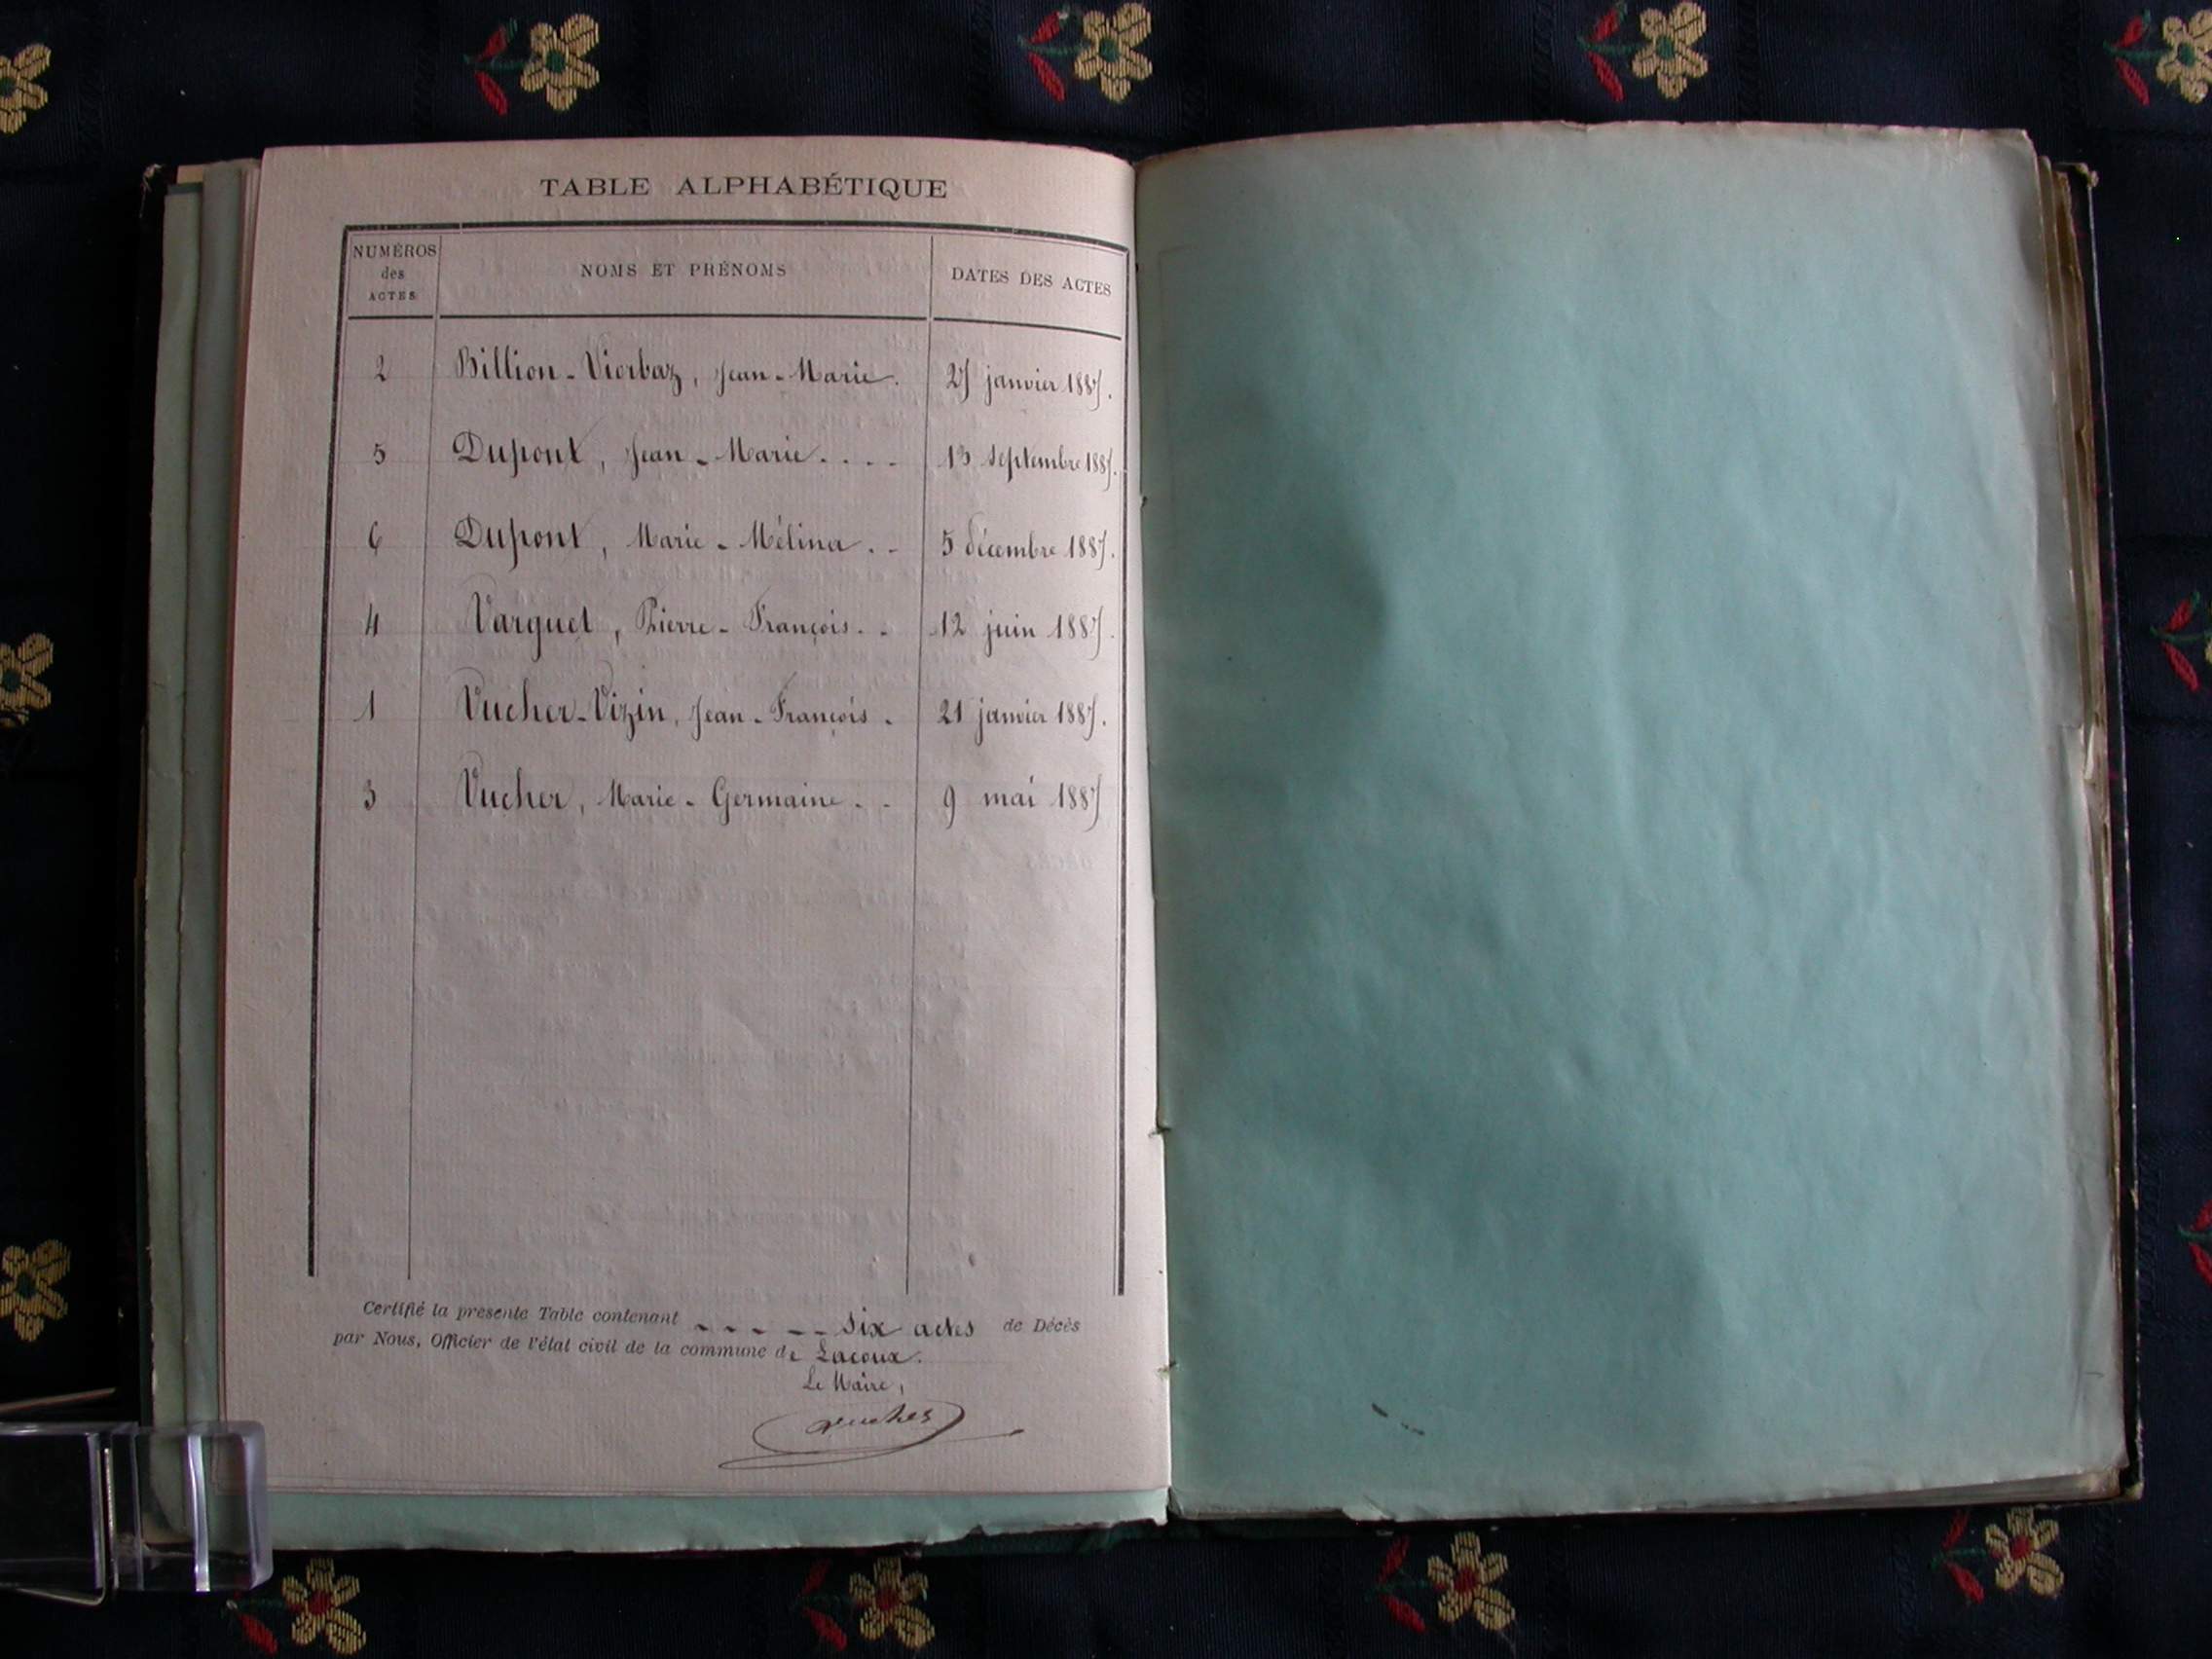 TABLE ALPHABÉTIQUE
NUMÉROS des ACTES NOMS ET PRÉNOMS DATES DES ACTES
2 Billion-Viorbaz, Jean-Marie. 27 janvier 1887.
5 Dupont, Jean-Marie.... 13 septembre 1887.
6 Dupont, Marie-Mélina.. 5 décembre 1887.
4 Varquet, Pierre-François.. 12 juin 1887.
1 Vucher-Vizin, Jean-François. 21 janvier 1887.
3 Vucher, Marie-Germaine.. 9 mai 1887
Certifié la présente Table contenant - - - - - six actes de Décès
par Nous, Officier de l'état civil de la commune de Lacoux.
Le Maire,
Vucher